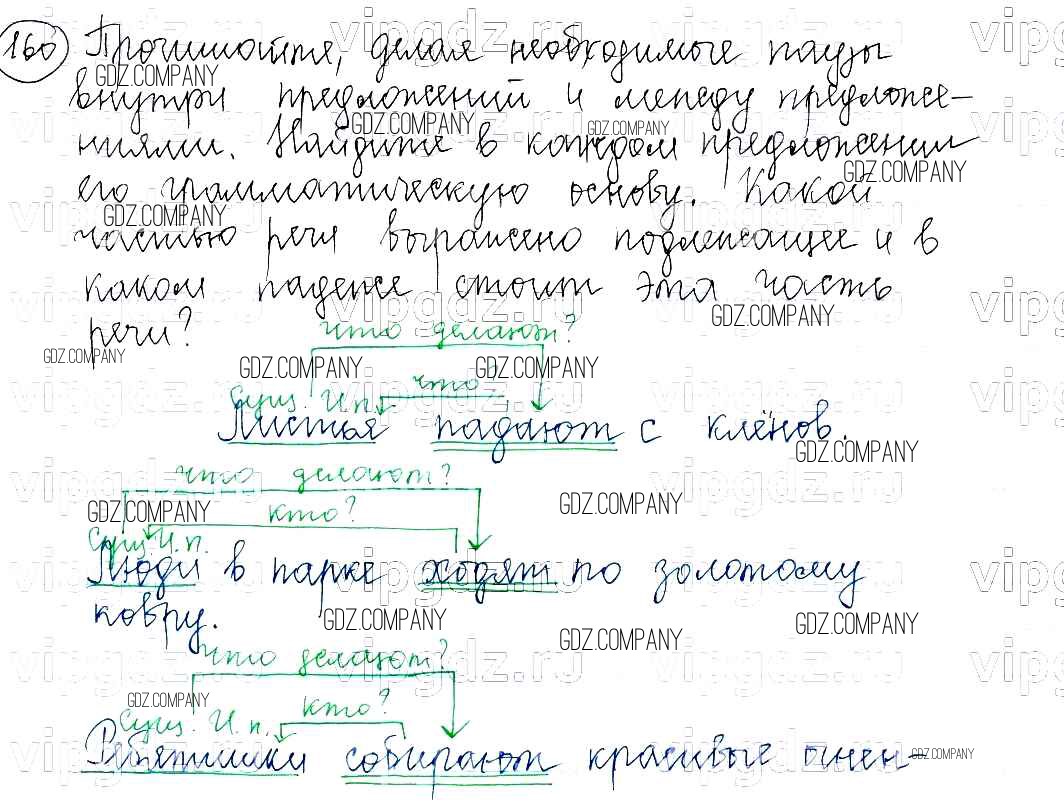 160 Прочитайте, делая необходимые паузы
внутри предложений и между предложе-
ниями. Найдите в каждом предложении
его грамматическую основу. Какой
частью речи выражено подлежащее и в
каком падеже стоит эта часть
речи?
что делают?
что?
Сущ. И.п.
Листья падают с клёнов.
что делают?
кто?
Сущ. И.п.
Люди в парке ходят по золотому
ковру.
что делают?
кто?
Сущ. И.п.
Ребятишки собирают красивые опен-
vipgdz.ru
GDZ.COMPANY